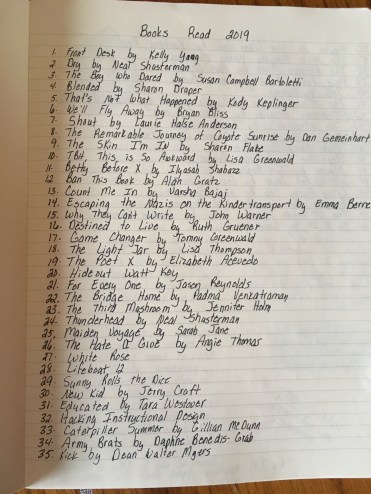 Books Read 2019
1. Front Desk by Kelly Yang
2. Dry by Neal Shusterman
3. The Boy Who Dared by Susan Campbell Bartoletti
4. Blended by Sharon Draper
5. That's Not What Happened by Kody Keplinger
6. We'll Fly Away by Bryan Bliss
7. Shout by Laurie Halse Anderson
8. The Remarkable Journey of Coyote Sunrise by Dan Gemeinhart
9. The Skin I'm In by Sharon Flake
10. TBH, This is So Awkward by Lisa Greenwald
11. Betty Before X by Ilyasah Shabazz
12. Ban This Book by Alan Gratz
13. Count Me In by Varsha Bajaj
14. Escaping the Nazis on the Kindertransport by Emma Berne
15. Why They Can't Write by John Warner
16. Destined to Live by Ruth Gruener
17. Game Changer by Tommy Greenwald
18. The Light Jar by Lisa Thompson
19. The Poet X by Elizabeth Acevedo
20. Hideout Watt Key
21. For Every One by Jason Reynolds
22. The Bridge Home by Padma Venkatraman
23. The Third Mushroom by Jennifer Holm
24. Thunderhead by Neal Shusterman
25. Maiden Voyage by Sarah Jane
26. The Hate U Give by Angie Thomas
27. White Rose
28. Lifeboat 12
29. Sunny Rolls the Dice
30. New Kid by Jerry Craft
31. Educated by Tara Westover
32. Hacking Instructional Design
33. Caterpillar Summer by Gillian McDunn
34. Army Brats by Daphne Benedis-Grab
35. Kick by Dean Walter Myers